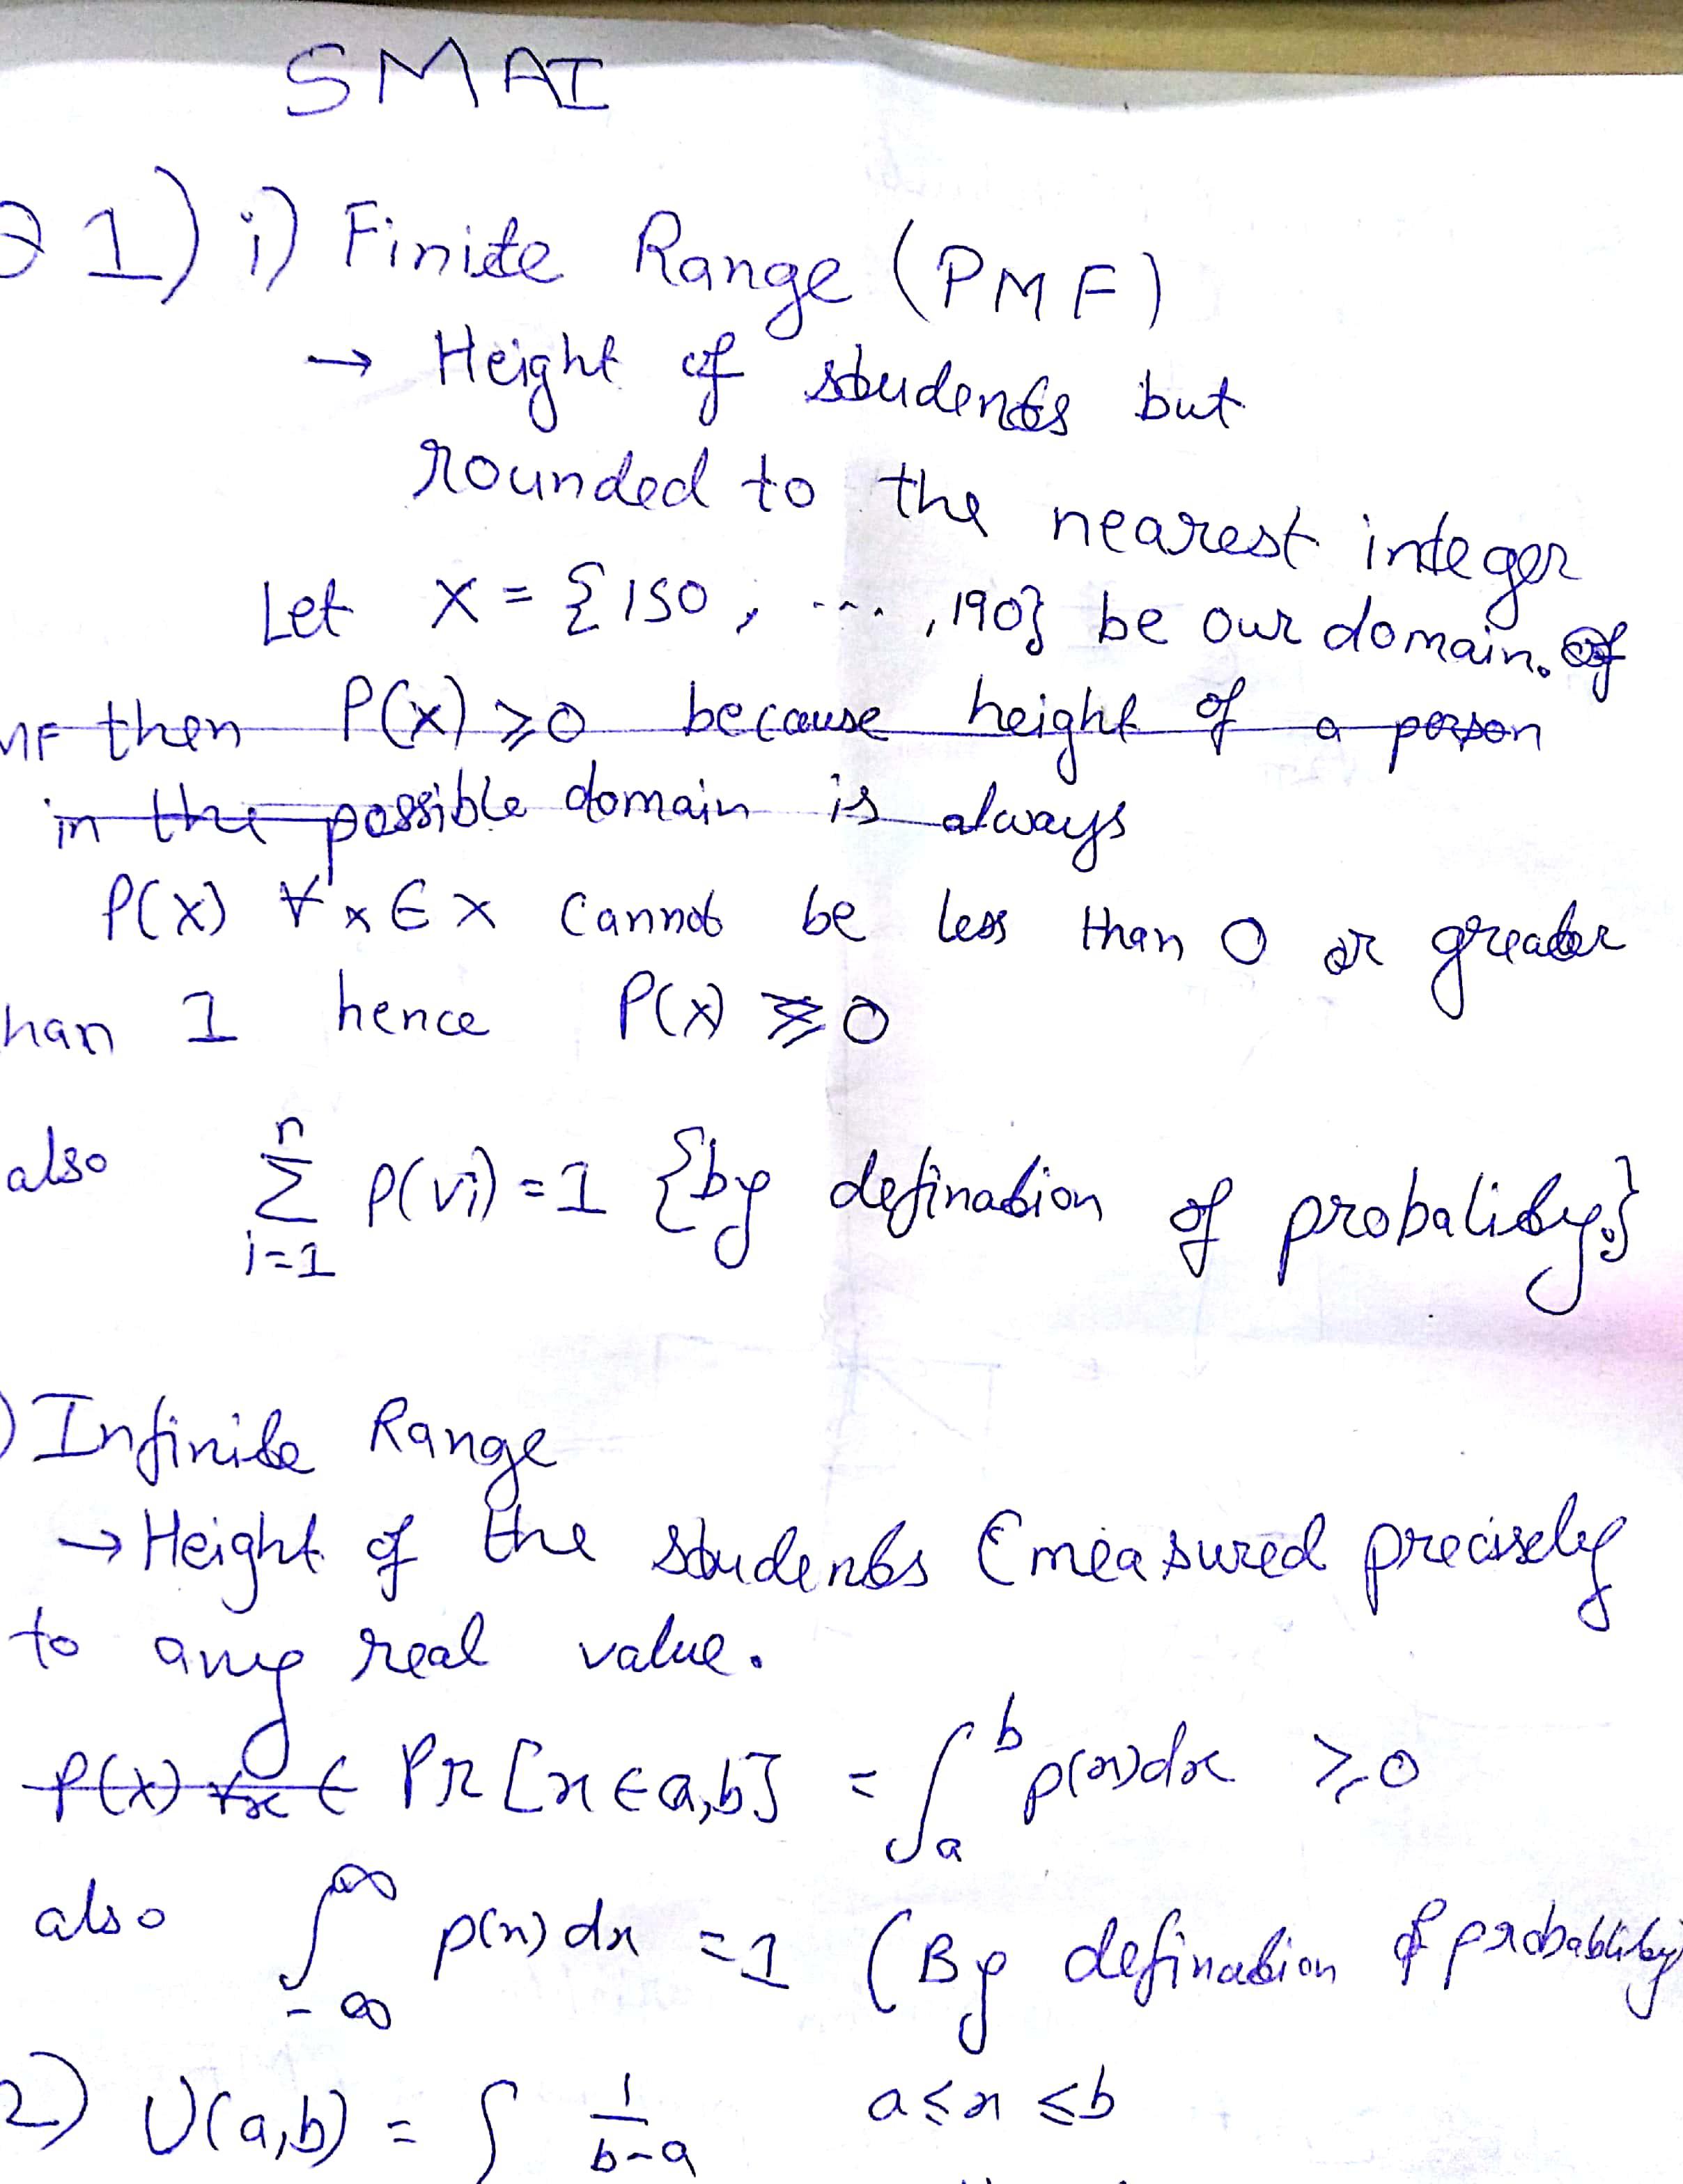 SMAI
Q 1) i) Finite Range (PMF)
→ Height of students but
rounded to the nearest integer
Let X = {150, ...., 190} be our domain. of
MF then P(X) ≥ 0 because height of a person
in the possible domain is always
P(X) ∀ x ∈ X cannot be less than 0 or greater
han 1 hence P(X) ≥ 0
also ∑_{i=1}^{n} P(vi) = 1 {by defination of probality.}
) Infinite Range
→ Height of the students (measured precisely
to any real value.
P(X) ∀x ∈ Pr [x ∈ a,b] = ∫_a^b p(x)dx ≥ 0
also ∫_{-∞}^{∞} p(x) dx = 1 (By defination of probablity
2) U(a,b) = { 1/(b-a) a ≤ x ≤ b